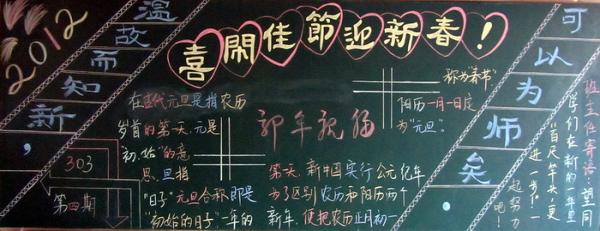 2012
温故而知新，
可以为师矣
喜闹佳節迎新春！
303
第四期
在古代元旦是指农历
岁首的第一天.元是
初.始"的意
思.旦指
"日子"元旦合称即是
"初始的日子".一年的
新年祝福
第一天.新中国实行公元纪年
为了区别农历和阳历两个
新年，便把农历正月初一
称为"春节"
阳历一月一日定
为"元旦"。
班主任寄语：望同
学们在新的一年里
"百尺竿头，更
进一步"！
起努力
吧！